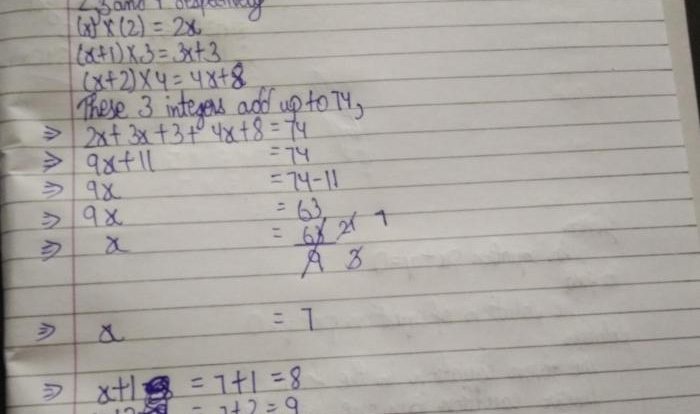 2, 3 and 4 respectively
(x) × (2) = 2x
(x+1) × 3 = 3x+3
(x+2) × 4 = 4x+8
These 3 integers add up to 74,
⇒ 2x + 3x + 3 + 4x + 8 = 74
⇒ 9x + 11 = 74
⇒ 9x = 74 - 11
⇒ 9x = 63
⇒ x = 63/9 21/3 7
⇒ x = 7
⇒ x+1 = 7+1 = 8
x+2 = 7+2 = 9